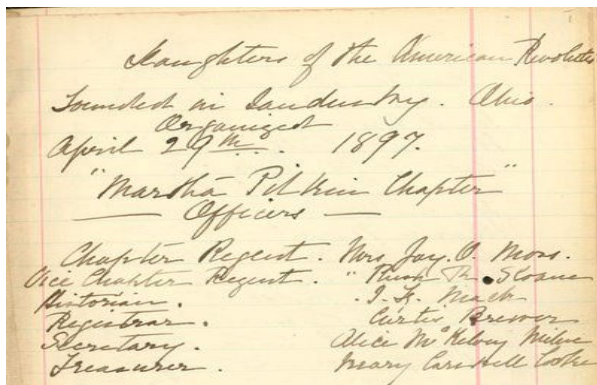 Daughters of the American Revolution
Founded in Sandusky. Ohio.
Organized
April 29th. 1897.
"Martha Pitkin Chapter"
Officers
Chapter Regent. Mrs Jay O. Moss.
Vice Chapter Regent. " Rush R. Sloane
Historian. " I. F. Mack
Registrar. Curtis Brewer
Secretary. Alice McKelvey Milne
Treasurer. Mary Cooke